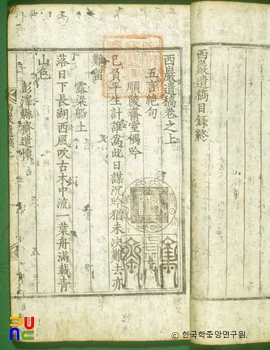 西巖遺稿目錄終
西巖遺稿卷之上
五言絶句
順陵齋室偶吟
已負平生計誰當此日謀沉吟猶未決難去亦
難留
露梁船上
落日下長湖西風吹古木中流一葉舟滿載青
山色
彭澤縣齋遺懷
한국학중앙연구원